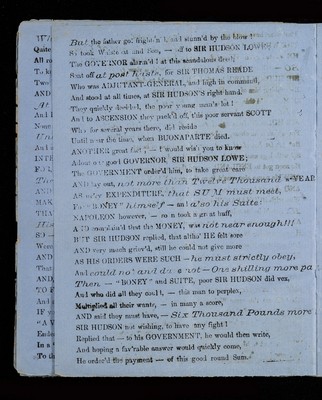 But the father got fright'n'd, and stunn'd by the blow!
So took White at and Foe, — off to SIR HUDSON LOWE
The GOVERNOR alarm'd! at this scandalous deed;
Sent off at post haste, for SIR THOMAS READE
Who was ADJUTANT-GENERAL, and high in command,
AND stood at all times, at SIR HUDSON'S right hand.
They quickly decided, the poor young man's lot!
And to ASCENSION they pack'd off, this poor servant SCOTT
Who for several years there, did reside
Until near the time, when BUONAPARTE died.
ANOTHER great fact; — I would wish you to know
About our good GOVERNOR, SIR HUDSON LOWE;
The GOVERNMENT order'd him, to take great care
AND lay out, not more than Twelve Thousand a-YEAR
All EXPENDITURE, that SUM must meet,
For "BONEY" himself — and also his Suite:
NAPOLEON however, — soon took a great huff,
AND complain'd that the MONEY, was not near enough!!!
BUT SIR HUDSON replied, that altho' HE felt sore
AND very much griev'd, still he could not give more
AS HIS ORDERS WERE SUCH — he must strictly obey,
And could not and dare not — One shilling more pay
Then — "BONEY" and SUITE, poor SIR HUDSON did vex,
And who did all they could, — this man to perplex,
Multiplied all their wants, — in many a score,
AND said they must have, — Six Thousand Pounds more
SIR HUDSON not wishing, to have any fight!
Replied that — to his GOVERNMENT, he would then write,
And hoping a fav'rable answer would quickly come,
He order'd the payment — of this good round Sum.